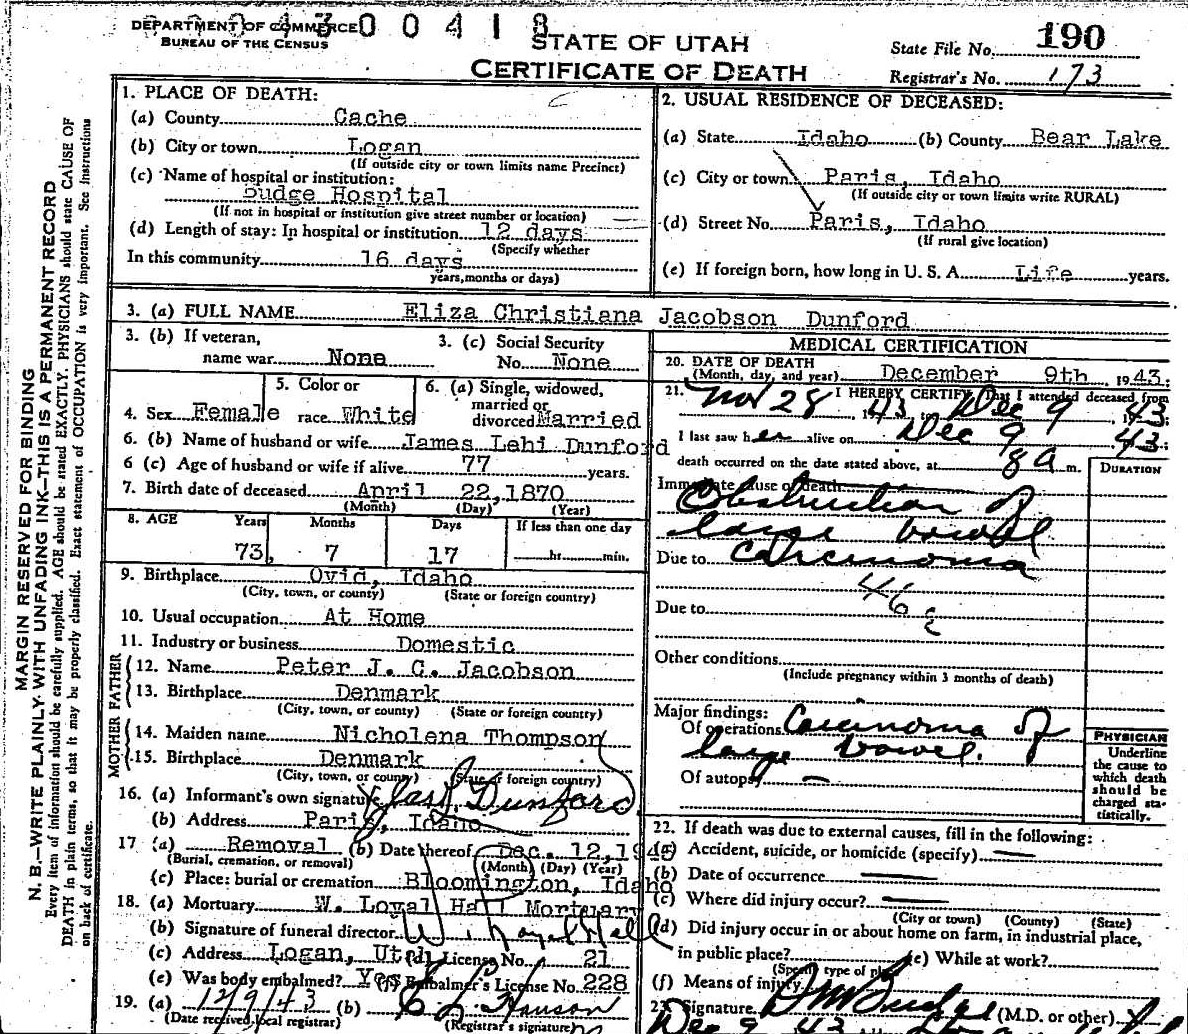 DEPARTMENT OF COMMERCE
BUREAU OF THE CENSUS
0 0 4 1 8
STATE OF UTAH
CERTIFICATE OF DEATH
State File No. 190
Registrar's No. 173
MARGIN RESERVED FOR BINDING
N. B.—WRITE PLAINLY WITH UNFADING INK—THIS IS A PERMANENT RECORD
Every item of information should be carefully supplied. AGE should be stated EXACTLY. PHYSICIANS should state CAUSE OF
DEATH in plain terms, so that it may be properly classified. Exact statement of OCCUPATION is very important. See Instructions
on back of certificate.
1. PLACE OF DEATH:
(a) County Cache
(b) City or town Logan
(If outside city or town limits name Precinct)
(c) Name of hospital or institution:
Budge Hospital
(If not in hospital or institution give street number or location)
(d) Length of stay: In hospital or institution 12 days
(Specify whether
In this community 16 days
years, months or days)
2. USUAL RESIDENCE OF DECEASED:
(a) State Idaho (b) County Bear Lake
(c) City or town Paris, Idaho
(If outside city or town limits write RURAL)
(d) Street No. Paris, Idaho
(If rural give location)
(e) If foreign born, how long in U. S. A. Life years.
3. (a) FULL NAME Eliza Christiana Jacobson Dunford
3. (b) If veteran,
name war None
3. (c) Social Security
No. None
4. Sex Female
5. Color or
race White
6. (a) Single, widowed,
married or
divorced Married
6. (b) Name of husband or wife James Lehi Dunford
6 (c) Age of husband or wife if alive 77 years.
7. Birth date of deceased April 22, 1870
(Month) (Day) (Year)
8. AGE Years Months Days If less than one day
73, 7 17 hr. min.
9. Birthplace Ovid, Idaho
(City, town, or county) (State or foreign country)
10. Usual occupation At Home
11. Industry or business Domestic
FATHER
12. Name Peter J. C. Jacobson
13. Birthplace Denmark
(City, town, or county) (State or foreign country)
MOTHER
14. Maiden name Nicholena Thompson
15. Birthplace Denmark
(City, town, or county) (State or foreign country)
16. (a) Informant's own signature Jas L Dunford
(b) Address Paris, Idaho
17 (a) Removal (b) Date thereof Dec. 12, 1943
(Burial, cremation, or removal) (Month) (Day) (Year)
(c) Place: burial or cremation Bloomington, Idaho
18. (a) Mortuary W. Loyal Hall Mortuary
(b) Signature of funeral director W. Loyal Hall
(c) Address Logan, Utah (d) License No. 21
(e) Was body embalmed? Yes (f) Embalmer's License No. 228
19. (a) 12/9/43 (b) Hanson
(Date received local registrar) (Registrar's signature)
MEDICAL CERTIFICATION
20. DATE OF DEATH
(Month, day, and year) December 9th, 1943:
21. I HEREBY CERTIFY, That I attended deceased from
Nov 28, 1943, to Dec 9, 1943;
I last saw her alive on Dec 9 43;
death occurred on the date stated above, at 8 a m.
DURATION
Immediate cause of death
Obstruction of
large bowel
Due to Carcinoma
46 e
Due to
Other conditions
(Include pregnancy within 3 months of death)
Major findings:
Of operations Carcinoma of
large bowel.
Of autopsy —
PHYSICIAN
Underline
the cause to
which death
should be
charged sta-
tistically.
22. If death was due to external causes, fill in the following:
(a) Accident, suicide, or homicide (specify) —
(b) Date of occurrence —
(c) Where did injury occur? —
(City or town) (County) (State)
(d) Did injury occur in or about home on farm, in industrial place,
in public place? (e) While at work?
(Specify type of place)
(f) Means of injury
23. Signature D M Budge (M.D. or other)
Dec 9 43